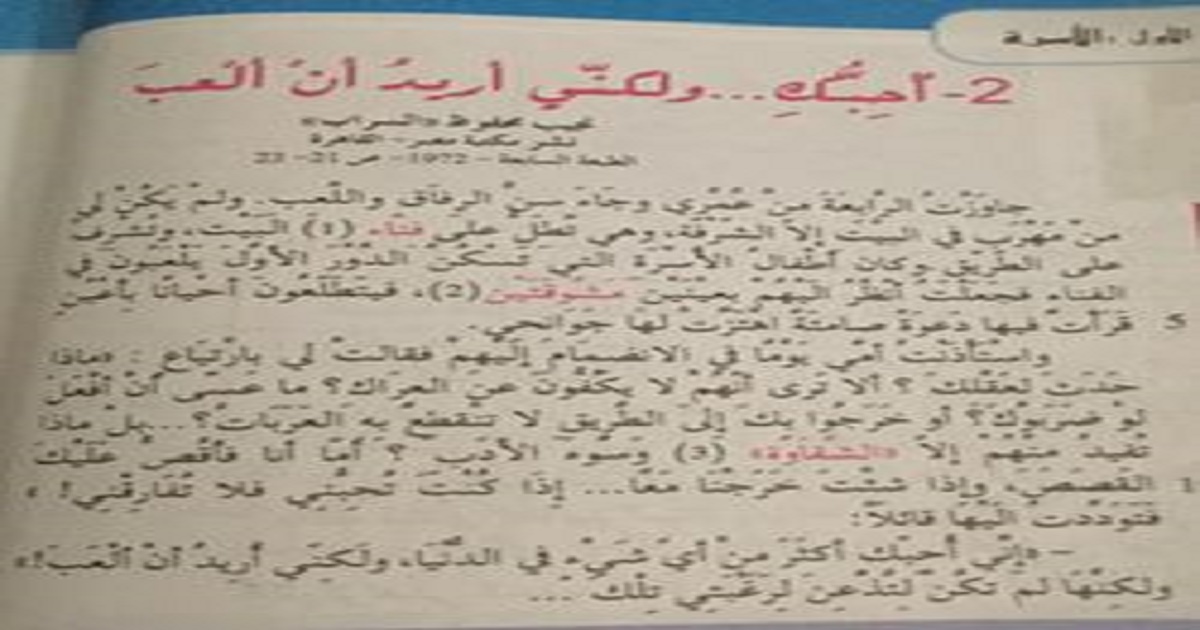 الأول : الأسرة
2- أُحِبُّكِ... ولكنّي أريدُ أنْ ألْعبَ
نجيب محفوظ «السراب»
نشر مكتبة مصر - القاهرة
الطبعة السابعة - 1972- ص 21- 23
جاوَزْتُ الرابِعَةَ مِنْ عُمْري وجَاءَ سِنُّ الرفاق واللّعب. ولمْ يَكُنْ لي
مِنْ مَهْرب في البيت إلاّ الشرْفة، وهي تطل على فناء (1) البَيْت، وتُشرف
على الطّريق.وكان أطْفالُ الأسْرة التي تسكنُ الدّوْرَ الأوّلَ يَلْعَبُون في
الفناء فجعَلْتُ أنْظُرُ اليْهمْ بعيْنَيْن مشوقتيْن (2)، فيتطلّعُون أحْيانًا بأعْيُن
5 قرأتُ فيها دَعْوَةً صامتةً اهْتزّتْ لها جَوَانحي.
واسْتأذنْتُ أمّي يَوْمًا في الانضمام إليْهمْ فقالتْ لي بارْتياع : «ماذا
حَدَثَ لعَقْلكَ ؟ ألا ترى أنّهمْ لا يكُفُّونَ عنِ العِرَاك؟ ما عسى أنْ أفْعَلَ
لوْ ضرَبُوكَ؟ أو خَرَجُوا بكَ إلى الطّريق لا تنقطعُ به العَرَبَاتُ؟ ...بلْ ماذا
تُفيدُ منْهُمْ إلاّ «الشقاوة» (3) وسُوءَ الأدَب ؟ أمّا أنا فأقُصُّ عليْكَ
1 القَصَصَ، وإذا شئْتَ خَرَجْنَا مَعًا... إذَا كُنْتَ تُحِبُّني فلا تُفَارقْني! »
فتَوَدّدْتُ اليْهَا قائلاً:
– «إنّي أحبّك أكثَرَ مِنْ أيِّ شيْءٍ في الدّنْيَا، ولكنّي أُريدُ أنْ ألْعَبَ!»
ولكنّهَا لمْ تَكُنْ لتُذْعنَ لرَغْبَتي تلْكَ ...